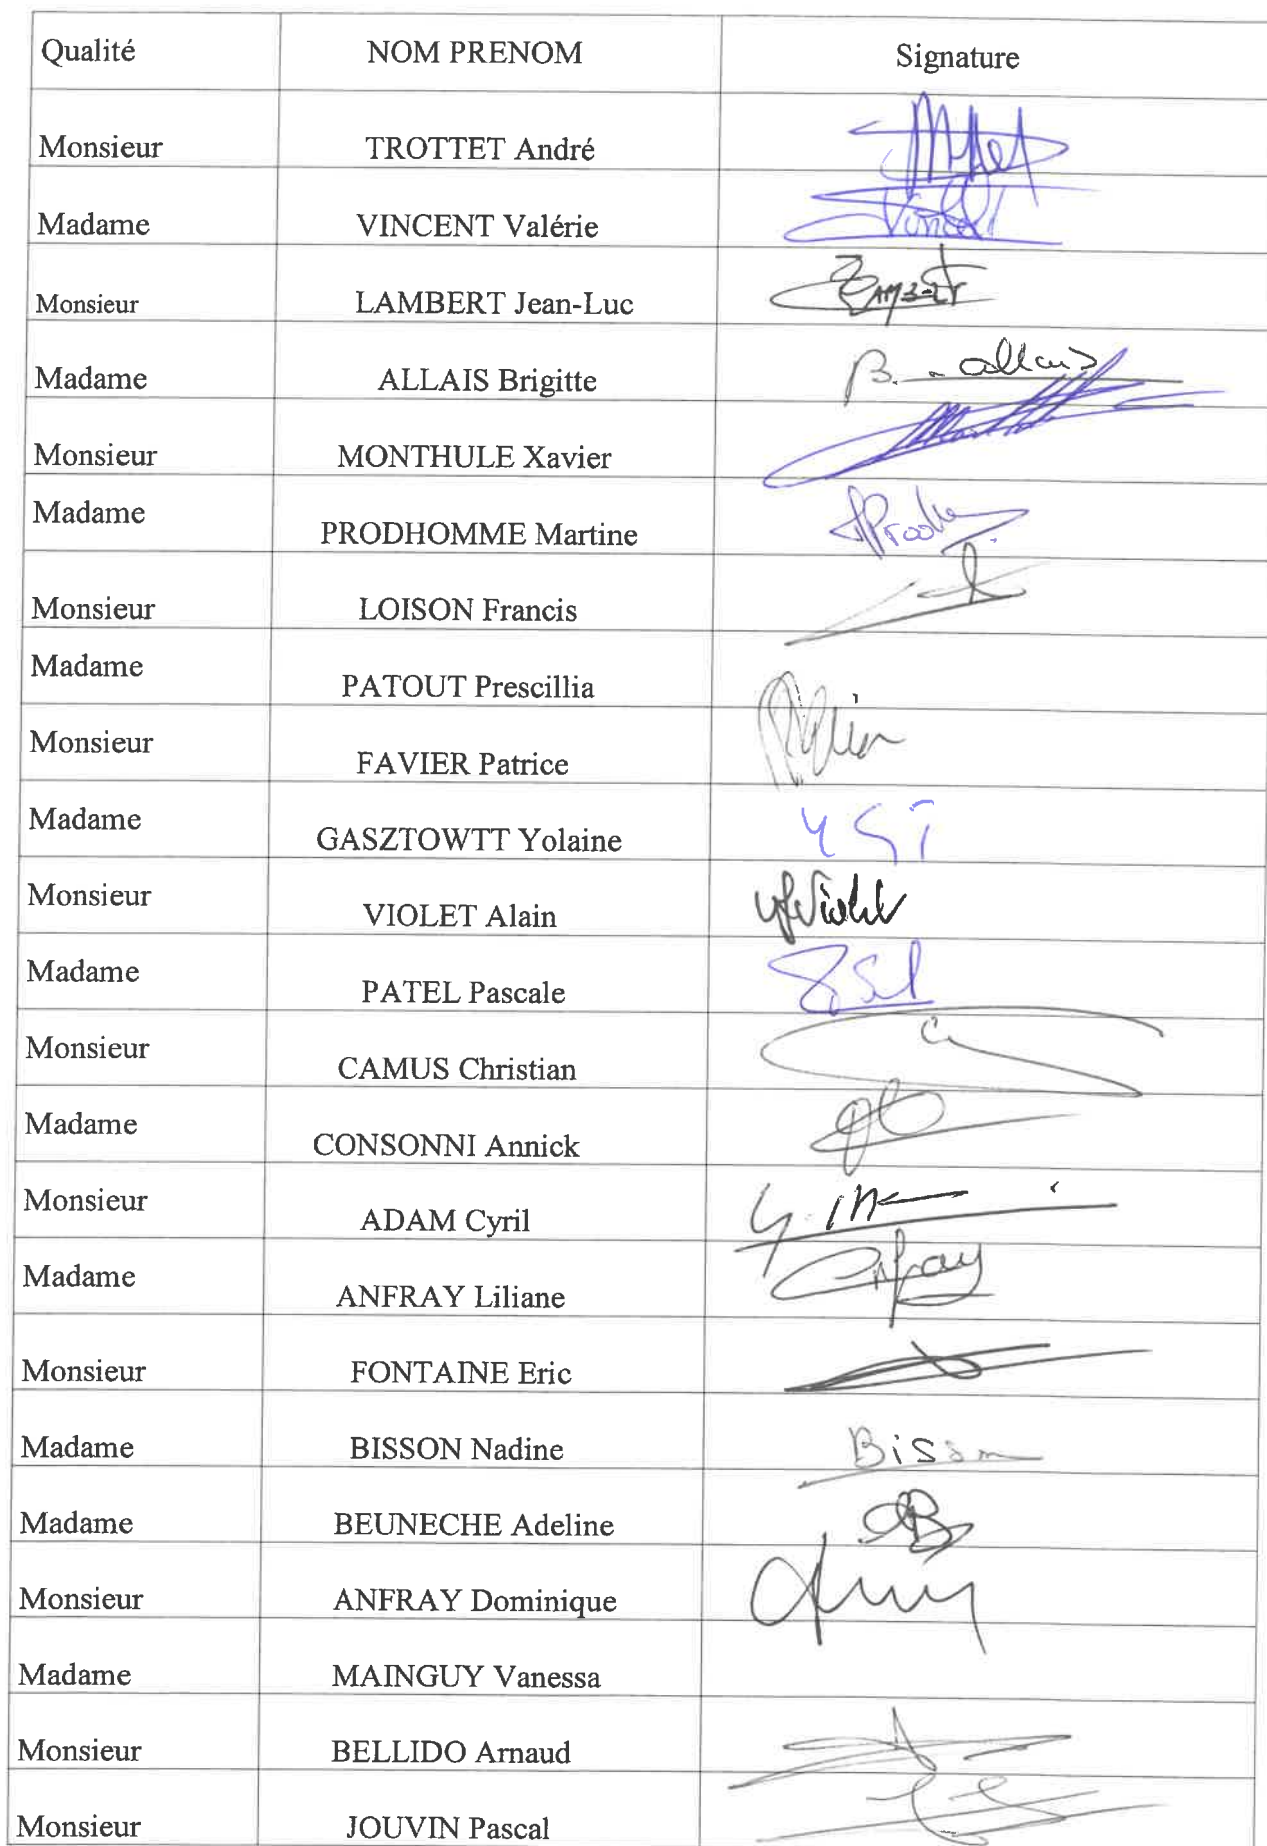 Qualité NOM PRENOM Signature
Monsieur TROTTET André
Madame VINCENT Valérie Vincent
Monsieur LAMBERT Jean-Luc
Madame ALLAIS Brigitte B. allais
Monsieur MONTHULE Xavier
Madame PRODHOMME Martine
Monsieur LOISON Francis
Madame PATOUT Prescillia
Monsieur FAVIER Patrice
Madame GASZTOWTT Yolaine
Monsieur VIOLET Alain
Madame PATEL Pascale
Monsieur CAMUS Christian
Madame CONSONNI Annick
Monsieur ADAM Cyril
Madame ANFRAY Liliane Anfray
Monsieur FONTAINE Eric
Madame BISSON Nadine Bisson
Madame BEUNECHE Adeline AB
Monsieur ANFRAY Dominique
Madame MAINGUY Vanessa
Monsieur BELLIDO Arnaud
Monsieur JOUVIN Pascal